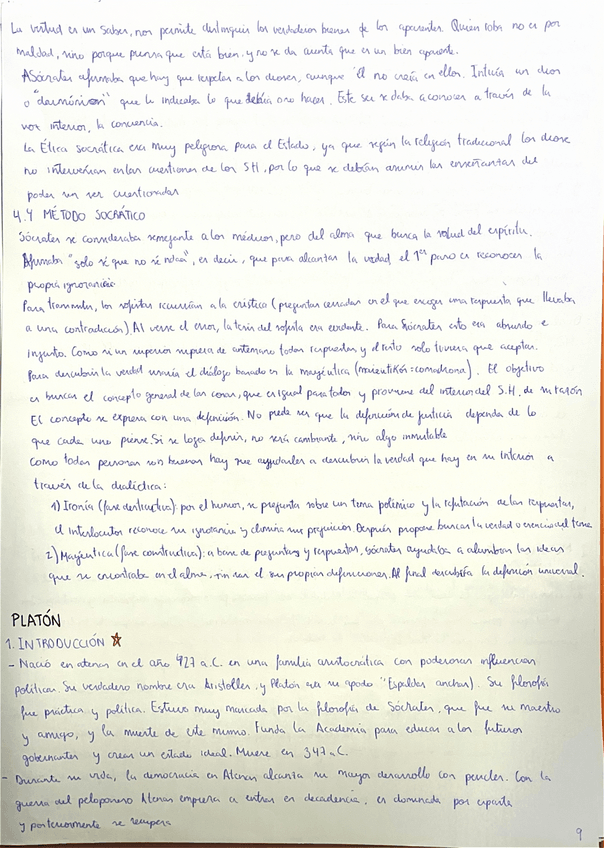 La virtud es un saber, nos permite distinguir los verdaderos bienes de los aparentes. Quien roba no es por
maldad, sino porque piensa que está bien. y no se da cuenta que es un bien aparente.
Sócrates afirmaba que hay que respetar a los dioses, aunque él no creía en ellos. Intuía un dios
o "daimónion" que le indicaba lo que debía o no hacer. Este ser se daba a conocer a través de la
voz interior, la conciencia.
La Ética Socrática era muy peligrosa para el Estado, ya que según la religión tradicional los dioses
no intervenían en las cuestiones de los SH, por lo que se debían asumir las enseñanzas del
poder sin ser cuestionadas
4.4 MÉTODO SOCRÁTICO
Sócrates se consideraba semejante a los médicos, pero del alma que busca la salud del espíritu.
Afirmaba "solo sé que no sé nada", es decir, que para alcanzar la verdad el 1er paso es reconocer la
propia ignorancia
Para transmitir, los sofistas recurrían a la erística (preguntas cerradas en el que escoges una respuesta que llevaba
a una contradicción) Al verse el error, la tesis del sofista era evidente. Para Sócrates esto era absurdo e
injusto. Como si un superior supiera de antemano todas respuestas y el resto solo tuviera que aceptar.
Para descubrir la verdad usaría el diálogo basado en la mayéutica (maieutikós: comadrona). El objetivo
es buscar el concepto general de las cosas, que es igual para todos y proviene del interior del S.H, de su razón
El concepto se expresa con una definición. No puede ser que la definición de justicia dependa de lo
que cada uno piense. Si se logra definir, no será cambiante, sino algo inmutable
Como todas personas son buenas hay que ayudarles a descubrir la verdad que hay en su interior a
través de la dialéctica:
1) Ironía (fase destructiva): por el humor, se pregunta sobre un tema polémico y la refutación de las respuestas,
el interlocutor reconoce su ignorancia y elimina sus prejuicios. Después propone buscar la verdad o esencia del tema
2) Mayéutica (fase constructiva): a base de preguntas y respuestas, sócrates ayudaba a alumbrar las ideas
que se encontraba en el alma, sin ser el sus propias definiciones. Al final descubría la definición universal.
PLATÓN
1. INTRODUCCIÓN
- Nació en atenas en el año 427 a.C. en una familia aristocrática con poderosas influencias
políticas. Su verdadero nombre era Aristolles, y Platón era su apodo "Espaldas anchas). Su filosofía
fue práctica y política. Estuvo muy marcada por la filosofía de Sócrates, que fue su maestro
y amigo, y la muerte de este mismo. Funda la Academia para educar a los futuros
gobernantes y crear un estado ideal. Muere en 347 a.C.
- Durante su vida, la democracia en Atenas alcanza su mayor desarrollo con pericles. Con la
guerra del peloponeso Atenas empieza a entrar en decadencia, es dominada por esparta
y posteriormente se recupera
9